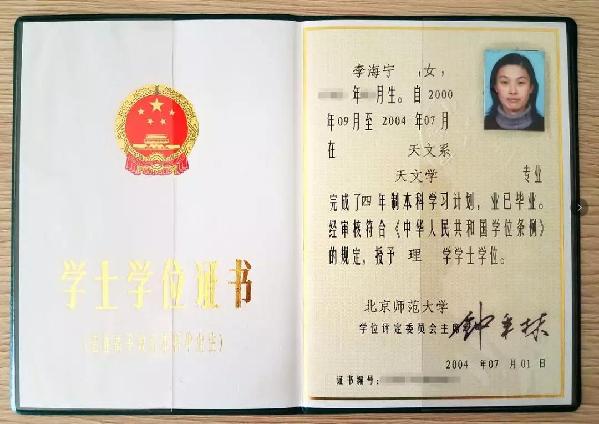 学士学位证书
李海宁 （女，
年 月生。自 2000
年09月至 2004 年07月
在 天文系
天文学 专业
完成了四年制本科学习计划，业已毕业。
经审核符合《中华人民共和国学位条例》
的规定，授予 理 学学士学位。
北京师范大学
学位评定委员会主席 钟秉林
2004 年 07 月 01 日
证书编号：